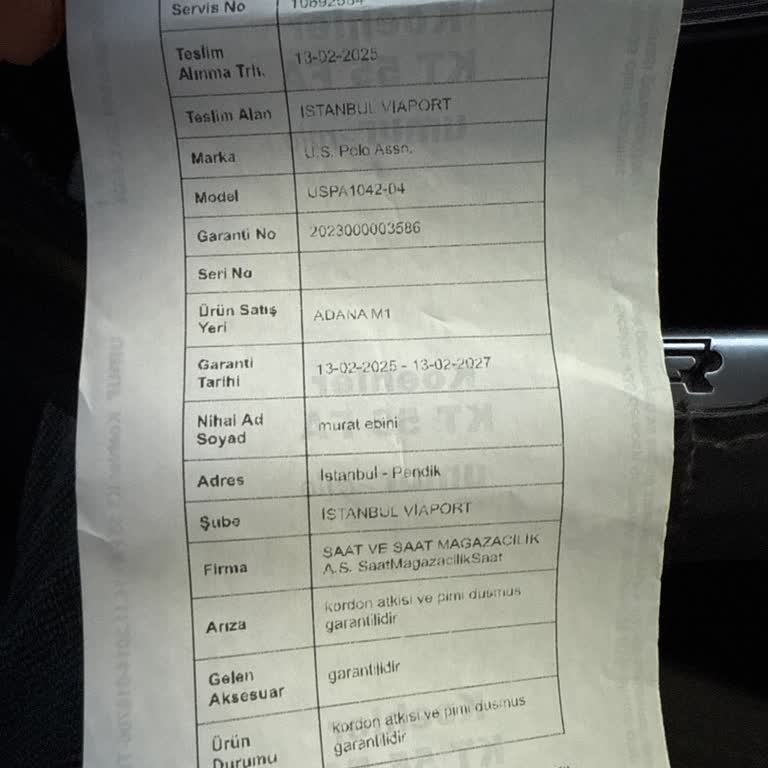 Servis No
Teslim Alınma Trh. 13-02-2025
Teslim Alan ISTANBUL VIAPORT
Marka U.S. Polo Assn.
Model USPA1042-04
Garanti No 2023000003586
Seri No
Ürün Satış Yeri ADANA M1
Garanti Tarihi 13-02-2025 - 13-02-2027
Nihai Ad Soyad murat ebini
Adres Istanbul - Pendik
Şube ISTANBUL VIAPORT
Firma SAAT VE SAAT MAGAZACILIK
A.S. SaatMagazacilikSaat
Arıza kordon atkisi ve pimi dusmus
garantilidir
Gelen Aksesuar garantilidir
Ürün Durumu kordon atkisi ve pimi dusmus
garantilidir